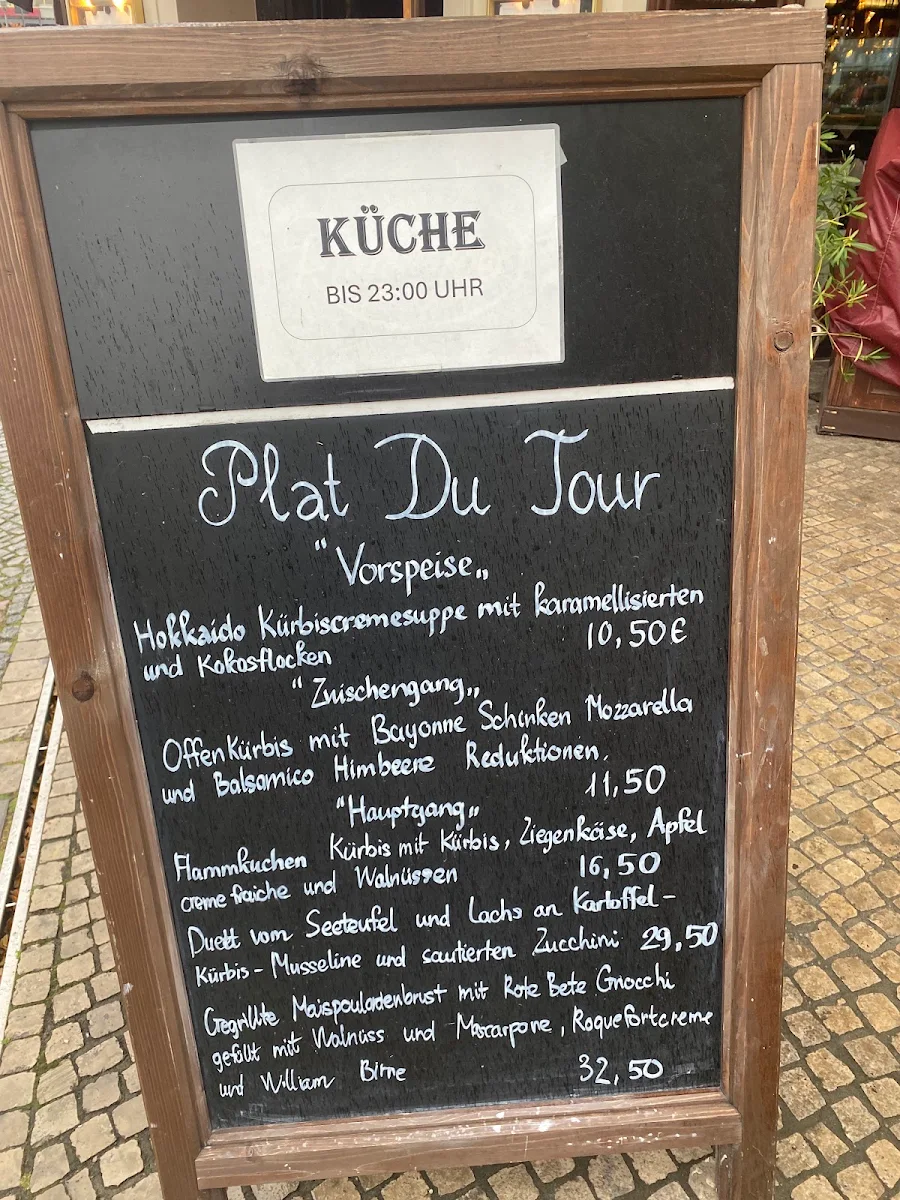 KÜCHE
BIS 23:00 UHR
Plat Du Jour
"Vorspeise„
Hokkaido Kürbiscremesuppe mit karamellisierten
und Kokosflocken 10,50€
"Zwischengang„
Offenkürbis mit Bayonne Schinken Mozzarella
und Balsamico Himbeere Reduktionen.
11,50
"Hauptgang„
Flammkuchen Kürbis mit Kürbis, Ziegenkäse, Apfel
creme fraiche und Walnüssen 16,50
Duett vom Seeteufel und Lachs an Kartoffel-
Kürbis-Musseline und sautierten Zucchini 29,50
Gegrillte Maispouladenbrust mit Rote Bete Gnocchi
gefüllt mit Walnuss und Mascarpone, Roquefortcreme
und William Birne 32,50